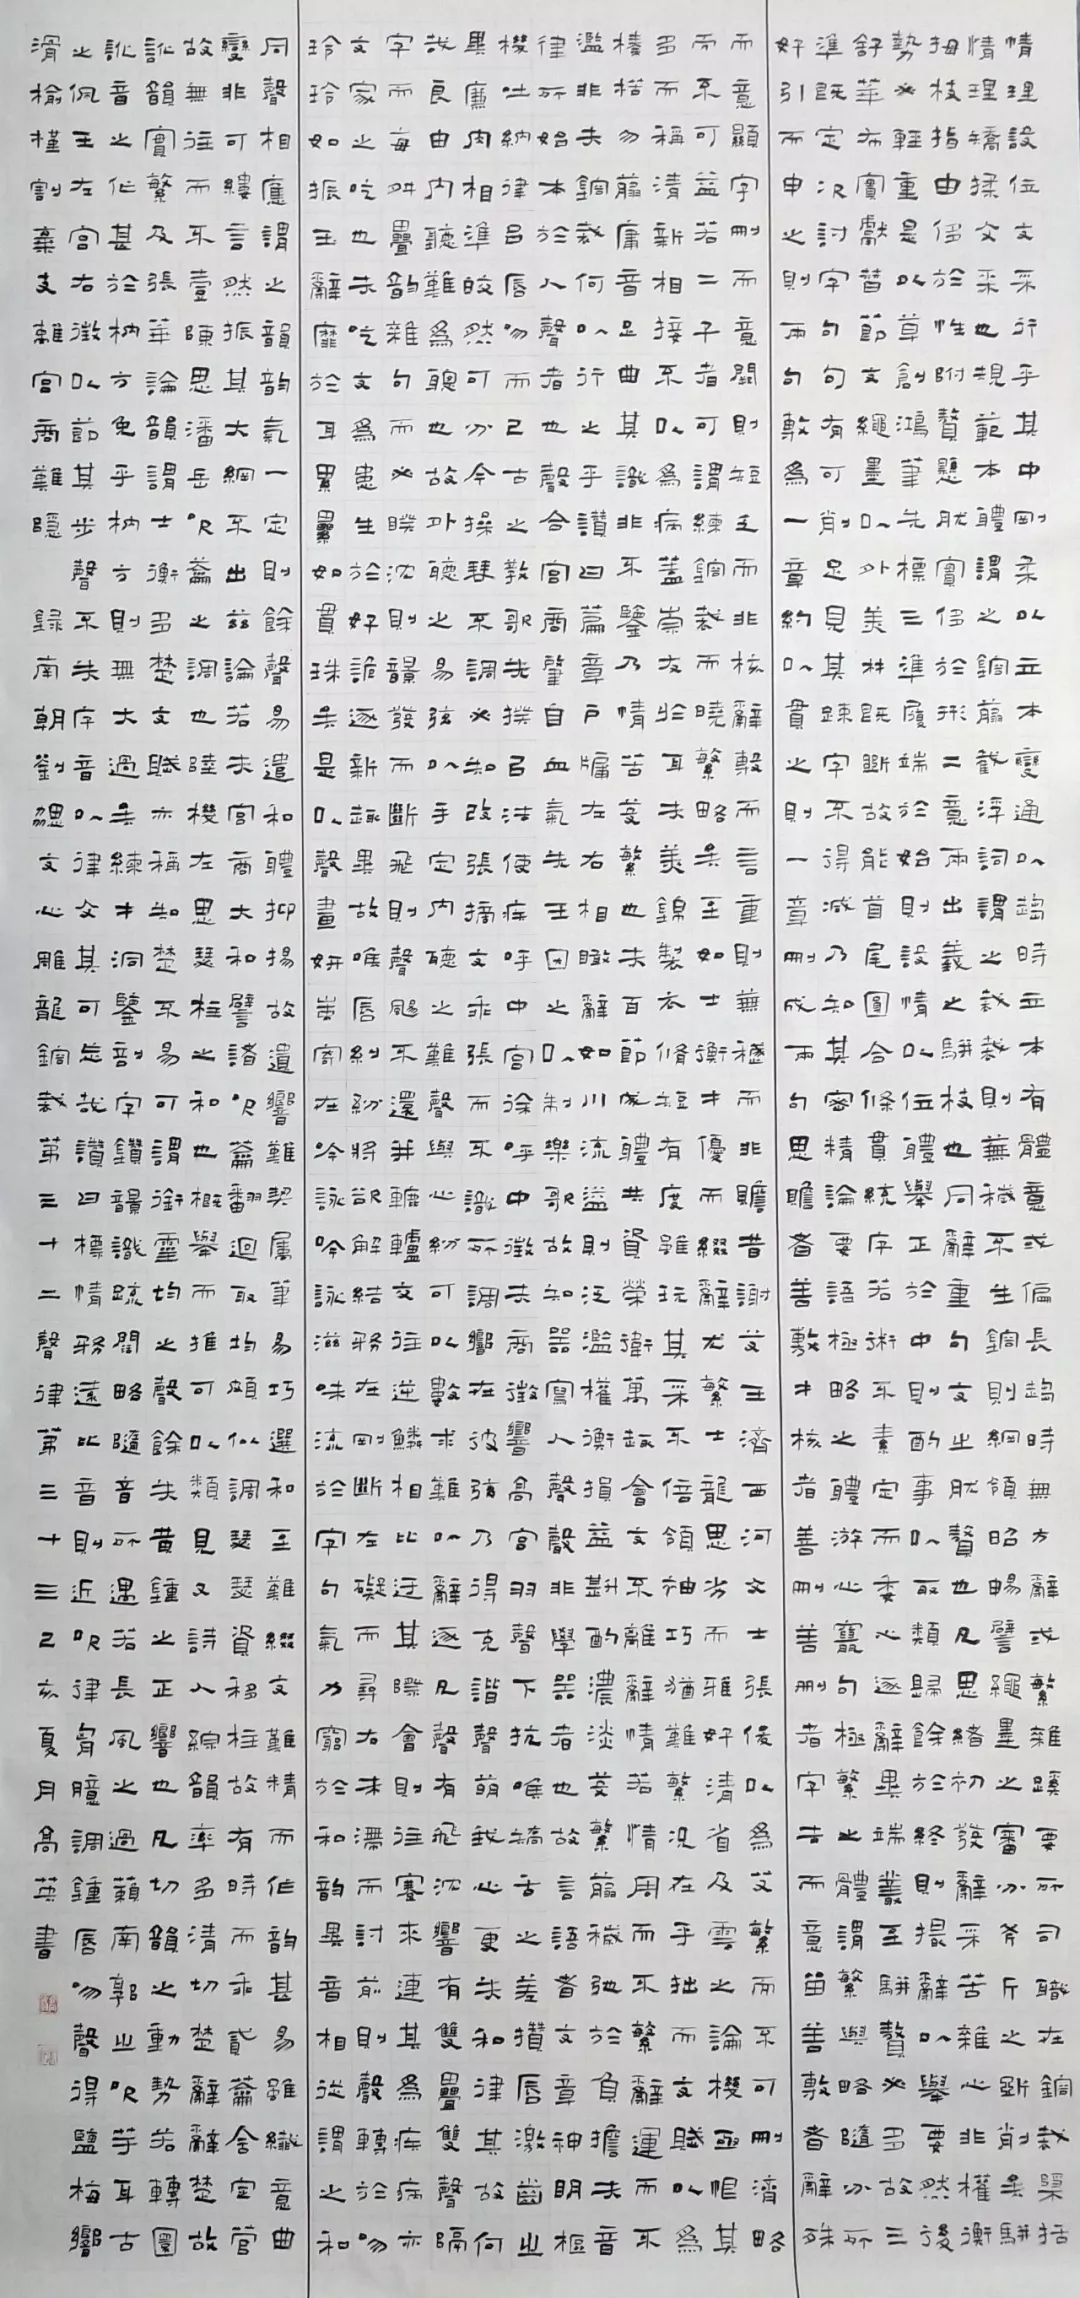 情理設位文采行乎其中剛柔以立本變通以趨時立本有體意或偏長趨時無方辭或繁雜蹊要所司職在鎔裁檃括
情理矯揉文采也規範本體謂之鎔剪截浮詞謂之裁裁則蕪穢不生鎔則綱領昭暢譬繩墨之審分斧斤之斲削矣駢
拇枝指由侈於性附贅懸肬實侈於形二意兩出義之駢枝也同辭重句文之肬贅也凡思緒初發辭采苦雜心非權衡
勢必輕重是以草創鴻筆先標三準履端於始則設情以位體舉正於中則酌事以取類歸餘於終則撮辭以舉要然後
舒華布實獻替節文繩墨以外美材既斲故能首尾圓合條貫統序若術不素定而委心逐辭異端叢至駢贅必多故三
準既定次討字句句有可削足見其疎字不得減乃知其密精論要語極略之體游心竄句極繁之體謂繁與略隨分所
好引而申之則兩句敷為一章約以貫之則一章刪成兩句思贍者善敷才核者善刪善刪者字去而意留善敷者辭殊
而意顯字刪而意闕則短乏而非核辭敷而言重則蕪穢而非贍昔謝艾王濟西河文士張俊以為艾繁而不可刪濟略
而不可益若二子者可謂練鎔裁而曉繁略矣至如士衡才優而綴辭尤繁士龍思劣而雅好清省及雲之論機亟恨其
多而稱清新相接不以為病蓋崇友於耳夫美錦製衣脩短有度雖玩其采不倍領袖巧猶難繁況在乎拙而文賦以為
榛楛勿翦庸音足曲其識非不鑒乃情苦芟繁也夫百節成體共資榮衛萬趣會文不離辭情若情周而不繁辭運而不
濫非夫鎔裁何以行之乎讚曰篇章戶牖左右相瞰辭如川流溢則泛濫權衡損益斟酌濃淡芟繁剪穢弛於負擔夫音
律所始本於人聲者也聲合宮商肇自血氣先王因之以制樂歌故知器寫人聲聲非學器者也故言語者文章神明樞
機吐納律呂唇吻而已古之教歌先揆以法使疾呼中宮徐呼中徵夫商徵響高宮羽聲下抗喉矯舌之差攢唇激齒之
異廉肉相準皎然可分今操琴不調必知改張摛文乖張而不識所調響在彼弦乃得克諧聲萌我心更失和律其故何
哉良由內聽難為聰也故外聽之易弦以手定內聽之難聲與心紛可以數求難以辭逐凡聲有飛沈響有雙疊雙聲隔
字而每舛疊韻雜句而必睽沈則響發而斷飛則聲颺不還並轆轤交往逆鱗相比迂其際會則往蹇來連其為疾病亦
文家之吃也夫吃文為患生於好詭逐新趣異故喉唇糾紛將欲解結務在剛斷左礙而尋右末滯而討前則聲轉於吻
玲玲如振玉辭靡於耳纍纍如貫珠矣是以聲畫妍蚩寄在吟詠吟詠滋味流於字句氣力窮於和韻異音相從謂之和
同聲相應謂之韻韻氣一定則餘聲易遣和體抑揚故遺響難契屬筆易巧選和至難綴文難精而作韻甚易雖纖意曲
變非可縷言然振其大綱不出茲論若夫宮商大和譬諸吹籥翻迴取均頗似調瑟瑟資移柱故有時而乖貳籥含定管
故無往而不壹陳思潘岳吹籥之調也陸機左思瑟柱之和也概舉而推可以類見又詩人綜韻率多清切楚辭辭楚故
訛韻實繁及張華論韻謂士衡多楚文賦亦稱知楚不易可謂銜靈均之聲餘失黃鍾之正響也凡切韻之動勢若轉圜
訛音之作甚於枘方免乎枘方則無大過矣練才洞鑒剖字鑽響識疏闊略隨音所遇若長風之過籟南郭之吹竽耳古
之佩玉左宮右徵以節其步聲不失字音以律文其可忘哉讚曰標情務遠比音則近吹律胷臆調鍾唇吻聲得鹽梅響
滑榆槿割棄支離宮商難隱 錄南朝劉勰文心雕龍鎔裁第三十二聲律第三十三己亥夏月高英書